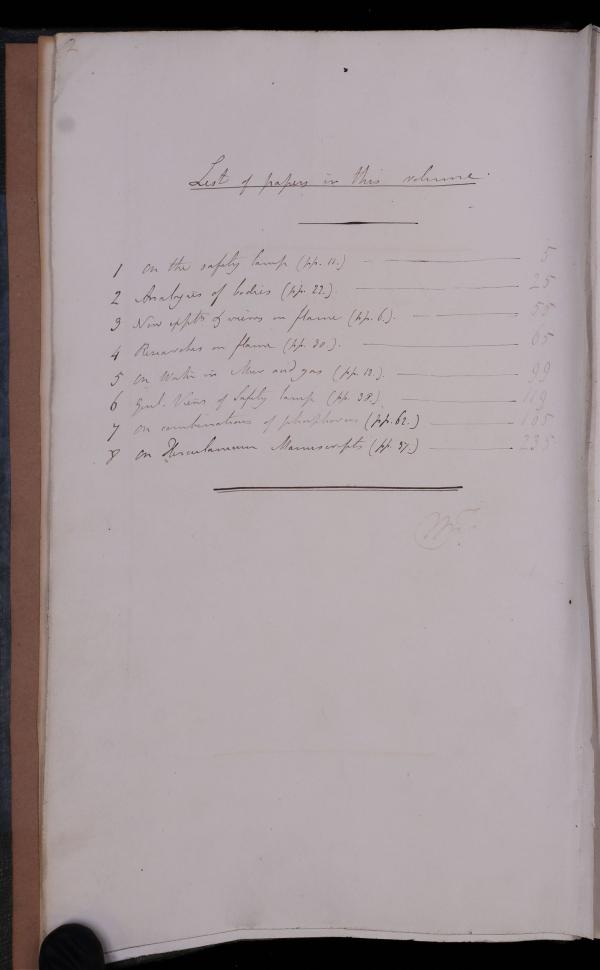 2
List of papers in this volume.
1 On the safety lamp (pp. 11.) 5
2 Analogies of bodies (pp. 22.) 25
3 New expts & views on flame (pp. 6.) 55
4 Researches on flame (pp. 30.) 65
5 On Water in Mur and gas (pp. 12.) 99
6 Genl. Views of Safety lamp (pp. 38.) 119
7 On combinations of phosphorus (pp. 62.)
8 On Herculaneum Manuscripts (pp. 37.) 235